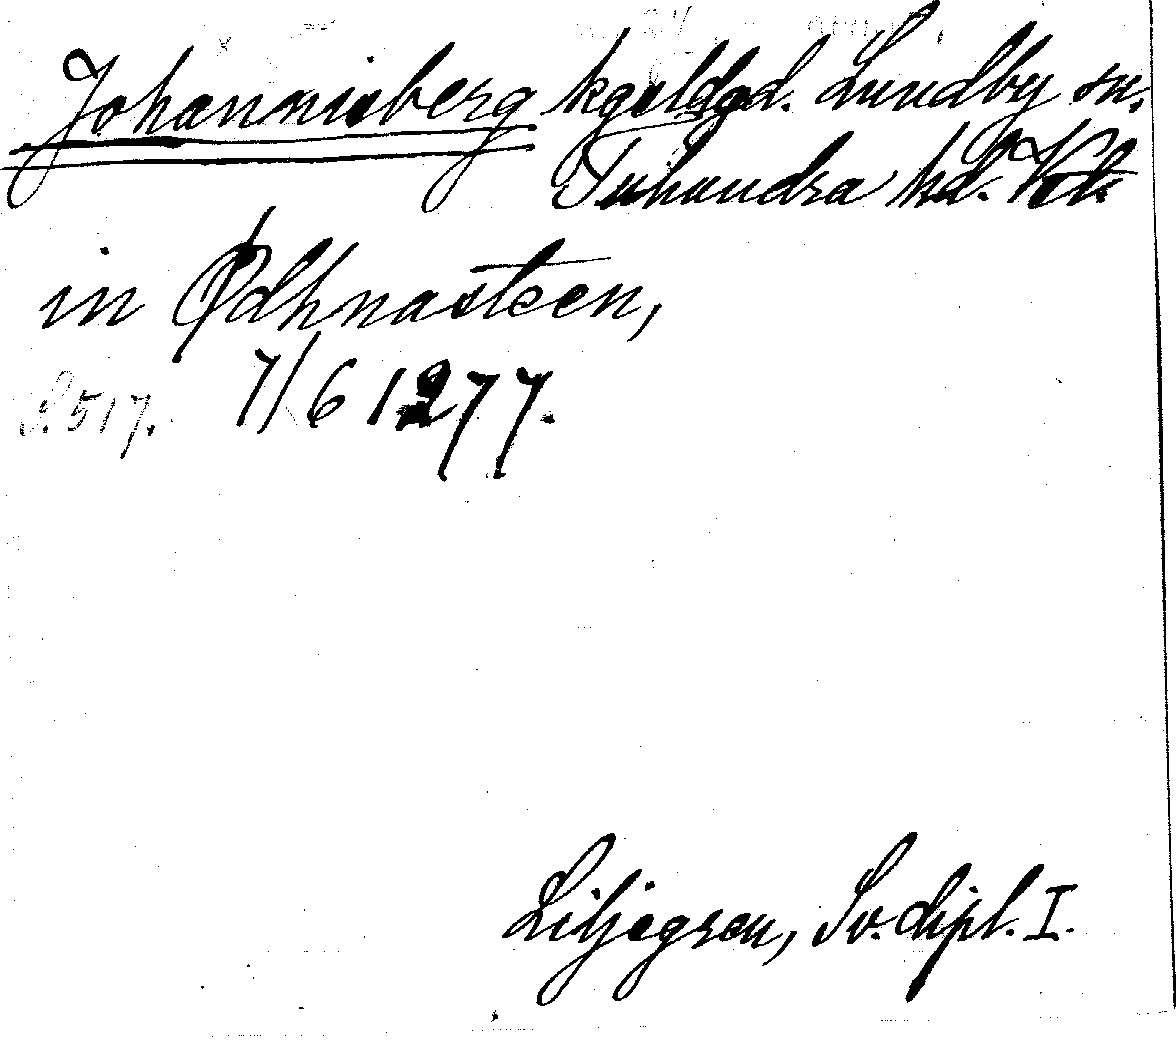 Johannisberg kgsldgd. Lundby sn.
Tuhundra hd. Vstm.
in Ødhnasteen,
S. 517. 7/6 1277.
Liljegren, Sv. dipl. I.